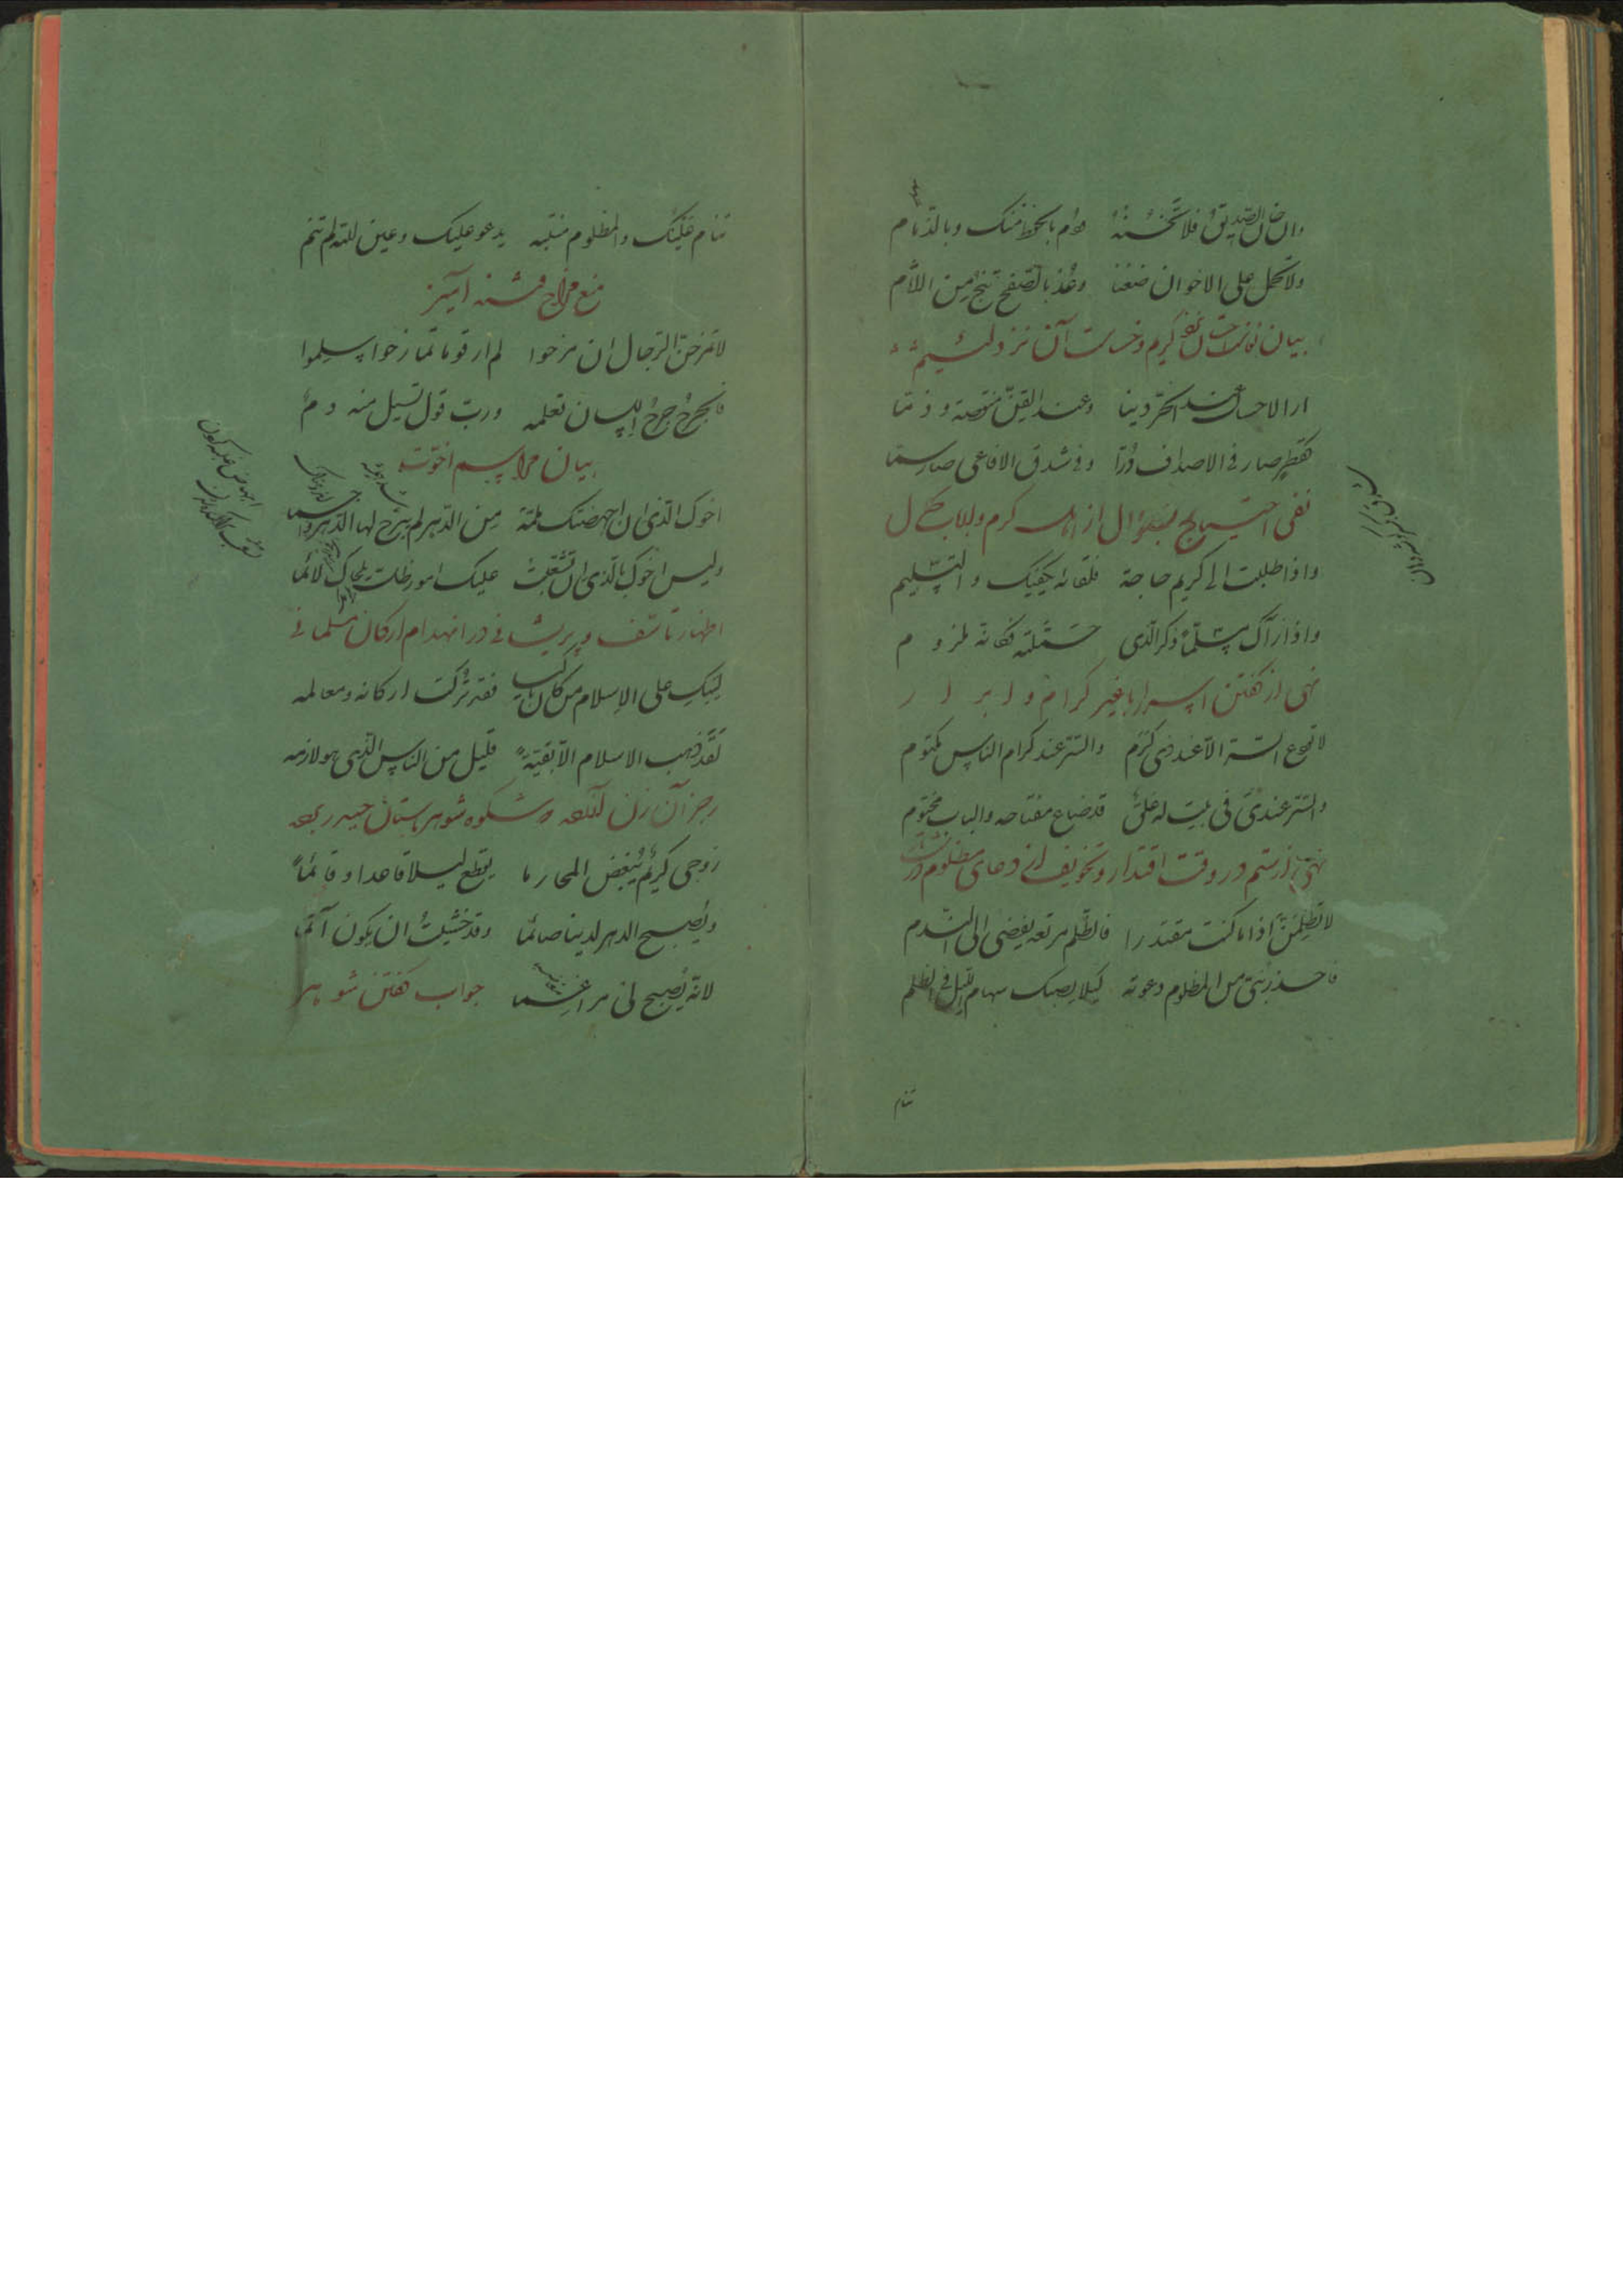 وان خان الصدیق فلا تخنه ودم بالحفظ منک وبالذمام
ولا تحمل علی الاخوان ضغنا وعذ بالصفح تنج من اللآم
بیان نفاست احسان نزد کریم وخساست آن نزد لئیم
ارا الاحسان عند الحر دینا وعند القن منقصة وذما
کقطر صار فی الاصداف درا وفی شدق الافاعی صار سما
نفی احتیاج بسؤال از اهل کرم و
واذا طلبت الی کریم حاجة فلقاؤه یکفیک والتسلیم
واذا رآک مسلّما ذکر الذی حمّلته فکانه ملزوم
نهی از گفتن اسرار با غیر کرام و ابرار
لا تودع السر الا عند ذی کرم والسر عند کرام الناس مکتوم
والسر عندی فی بیت له غلق قد ضاع مفتاحه والباب مختوم
نهی از ستم در وقت اقتدار وتخویف از دعای مظلوم در
لا تظلمن اذا ما کنت مقتدرا فالظلم مرتعه یفضی الی الندم
فاحذر بنی من المظلوم دعوته کیلا یصبک سهام اللیل فی الظلم
تنام
تنام عینک والمظلوم منتبه یدعو علیک وعین الله لم تنم
منع مزاح فتنه آمیز
لا تمزحن الرجال ان مزحوا لم ار قوما تمازحوا سلموا
فالجرح جرح اللسان تعلمه ورب قول تسیل منه دم
بیان مراسم اخوت
اخوک الذی ان اجهضتک ملمة من الدهر لم یبرح لها الدهر واجما
ولیس اخوک بالذی ان تشعبت علیک امور ظلت یلحاک لائما
اظهار تأسف و پریشانی در انهدام ارکان مسلمانی
لیبک علی الاسلام من کان باکیا فقد ترکت ارکانه ومعالمه
لقد ذهب الاسلام الا بقیة قلیل من الناس الذی هو لازمه
رجز آن زن که شکوه شوهر باستان حیدر
زوجی کریم یبغض المحارما یقطع لیلا قاعدا وقائما
ویصبح الدهر لدینا صائما وقد خشیت ان یکون آثما
لانه یصبح لی مراغما جواب گفتن شوهر